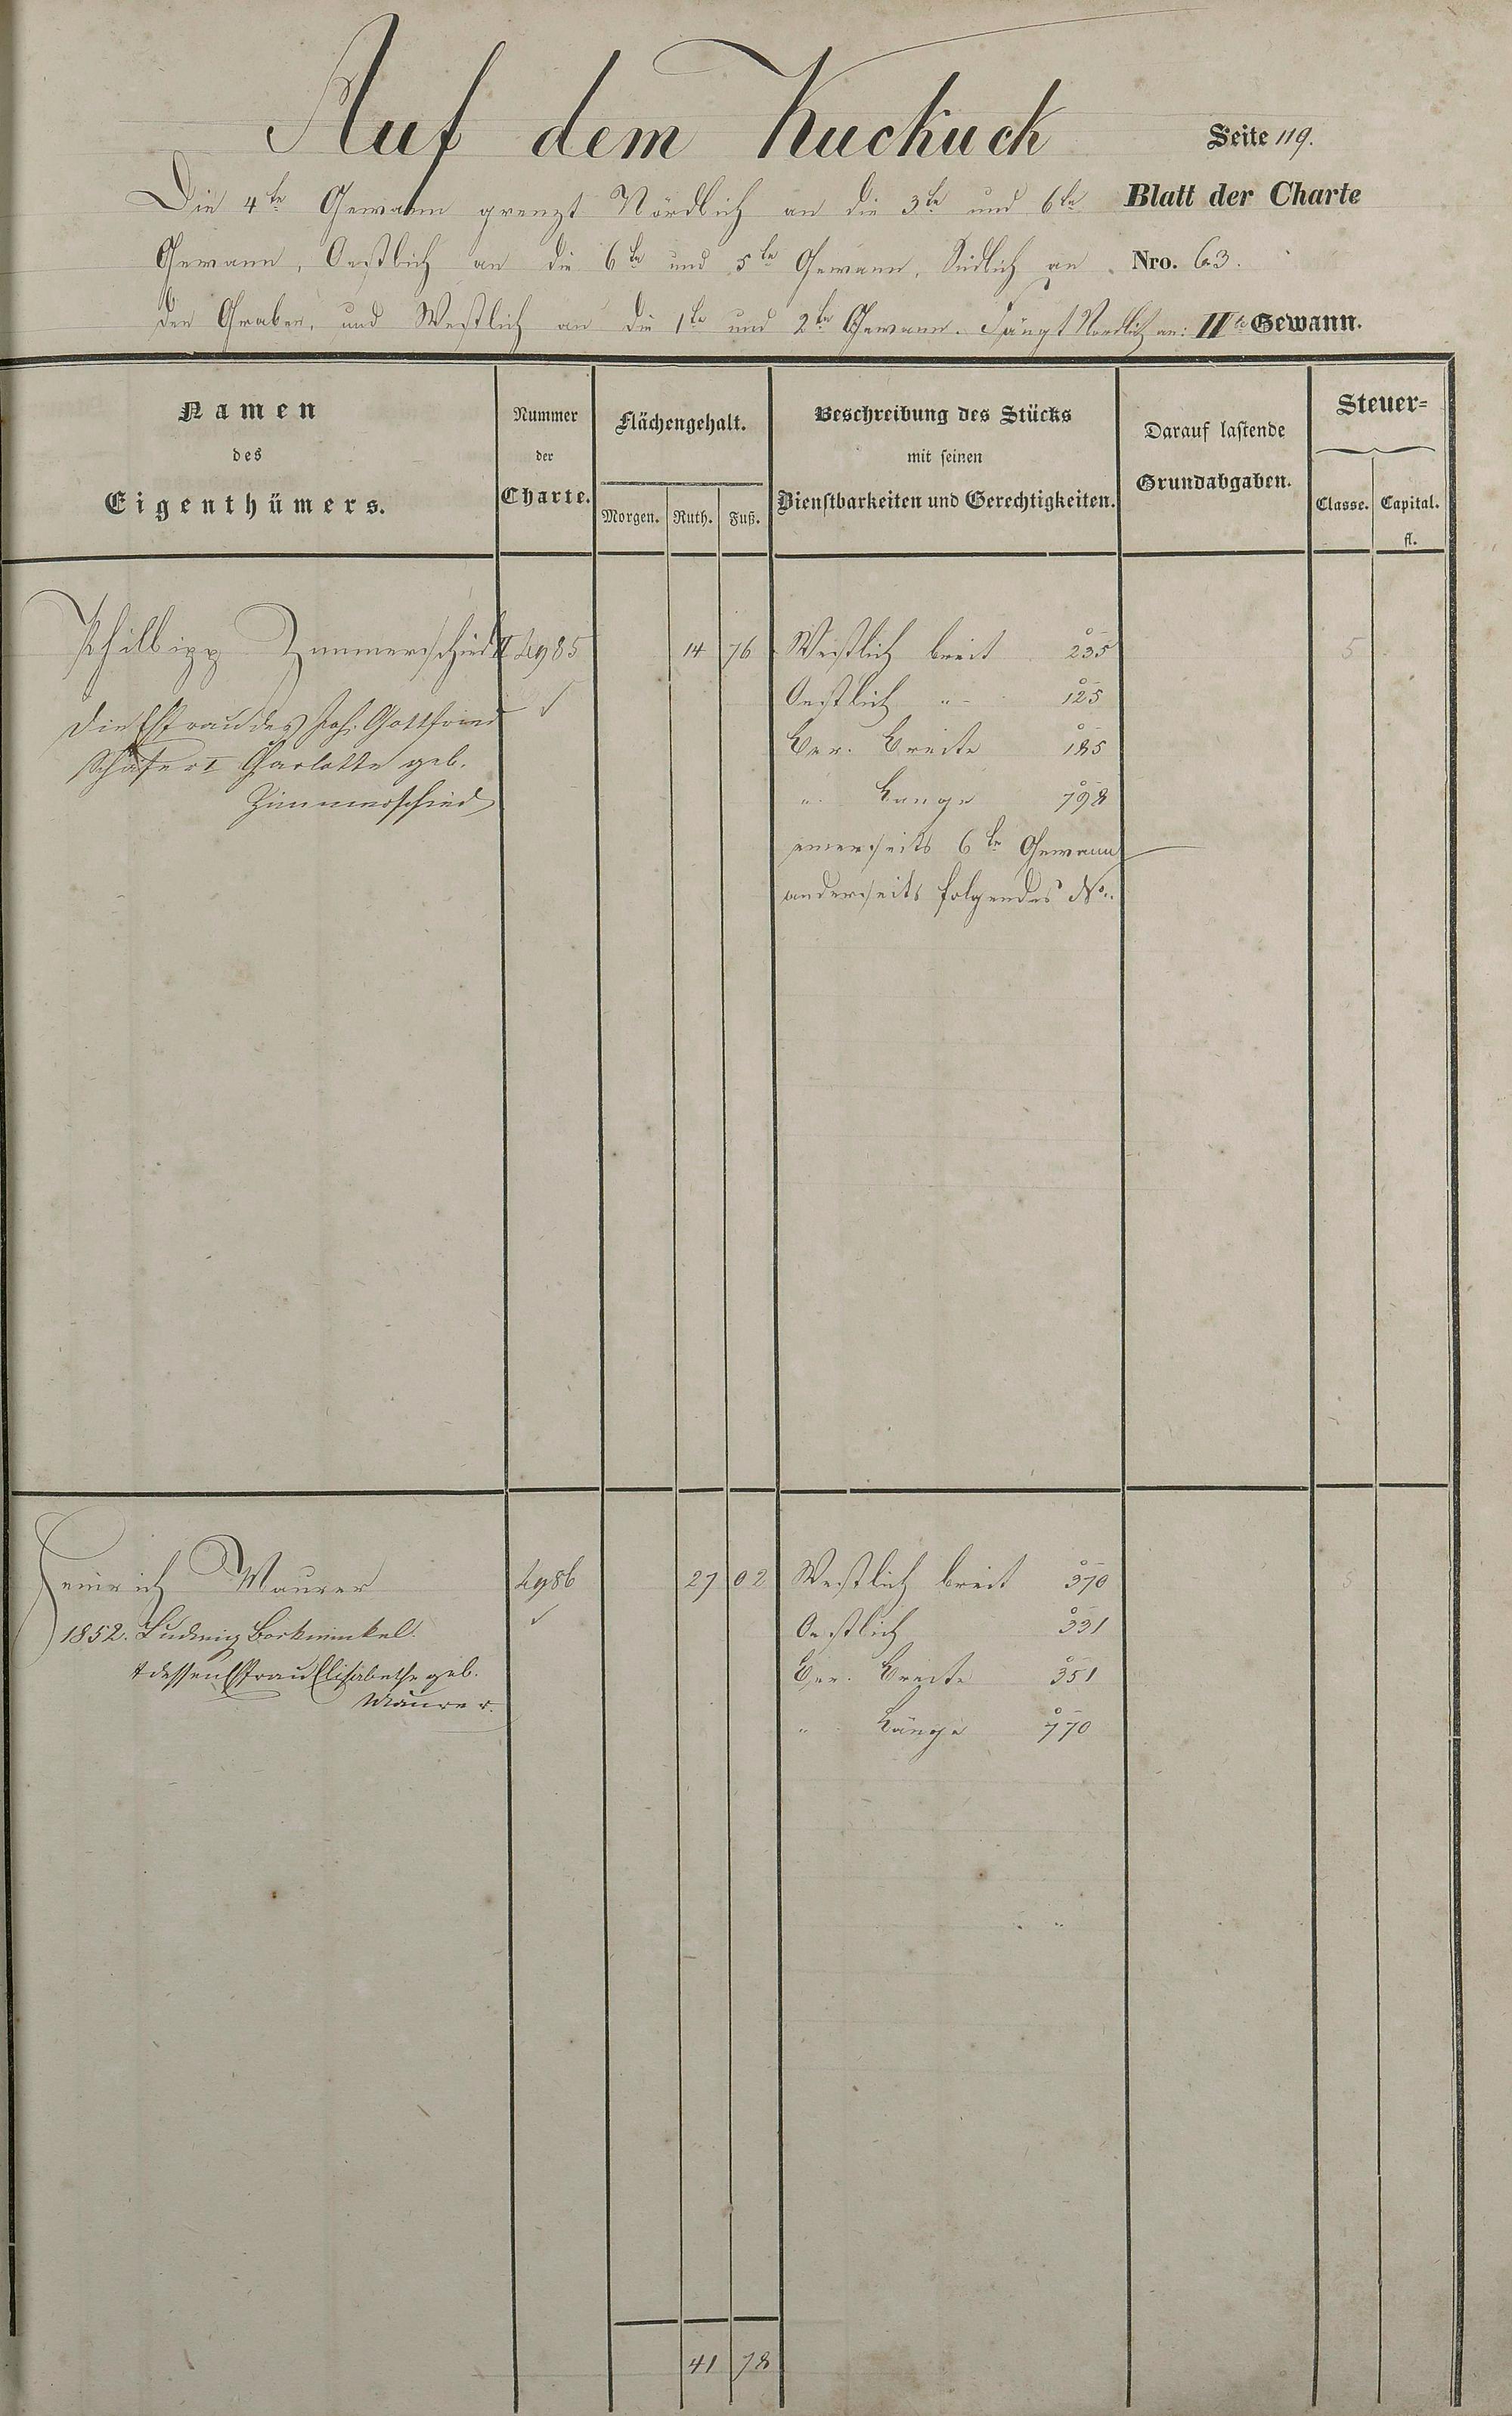 Auf dem Kuckuck
Seite 119.
Die 4te Gewann grenzt Nördlich an die 3te und 6te
Blatt der Charte
Gewann, Oestlich an die 6te und 5te Gewann, Südlich an
Nro. 63.
den Graben, und Westlich an die 1te und 2te Gewann. Fängt Nördlich an:
IVte Gewann.
Namen
des
Eigenthümers.
Nummer
der
Charte.
Flächengehalt.
Morgen. Ruth. Fuß.
Beschreibung des Stücks
mit seinen
Dienstbarkeiten und Gerechtigkeiten.
Darauf lastende
Grundabgaben.
Steuer=
Classe. Capital.
fl.
Philipp Zimmerschied II 4985 14 76 Westlich breit 235 5
Die Ehfrau des Joh. Gottfried
Oestlich " 125
Schäfer I Charlotte geb.
Ver. Breite 185
Zimmerschied
" Lange 798
einerseits 6te Gewann
anderseits folgendes No.
Heinrich Maurer 4986 27 02 Westlich breit 370 5
1852. Ludwig Borkwinkel
Oestlich 331
& dessen Ehfrau Elisabethe geb.
Ver. Breite 351
Maurer.
" Länge 770
41 78